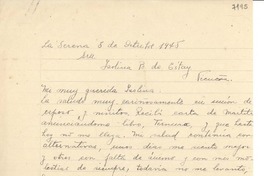 La Serena 5 de Octubre 1945
Sra
Isolina B. de Estay
Vicuña.
Mi muy querida Isolina.
La saludo muy cariñosamente en unión de
esposo y niñitos. Recibí carta de Matilde
anunciándome libro, Ternura, que hasta
hoy no me llega. Mi salud continúa con
alternativas, unos días me siento mejor
y otros con falta de sueño y con más mo-
lestias de siempre, todavía no me levanto,